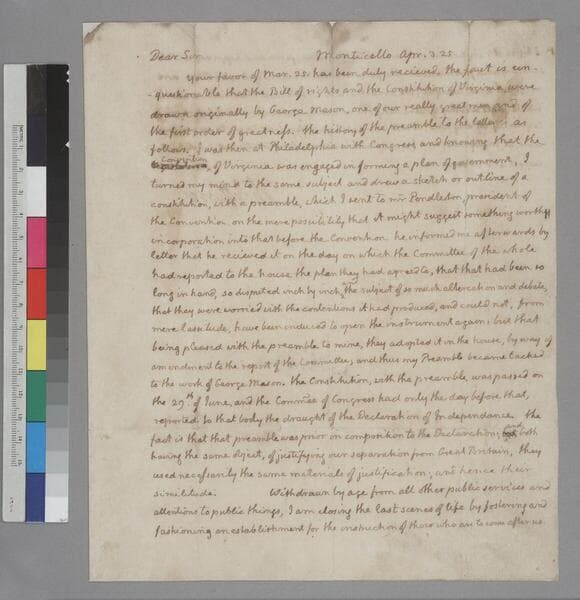 Dear Sir Monticello Apr. 3. 25.
Your favor of Mar. 25. has been duly recieved. the fact is un-
-questionable that the Bill of rights and the Constitution of Virginia were
drawn originally by George Mason, one of our really great men and of
the first order of greatness. the history of the preamble to the latter is as
follows. I was then at Philadelphia with Congress and knowing that the
Convention of Virginia was engaged in forming a plan of government, I
turned my mind to the same subject and drew a sketch or outline of a
constitution, with a preamble, which I sent to mr Pendleton, president of
the Convention on the mere possibility that it might suggest something worth
incorporation into that before the Convention. he informed me afterwards by
letter that he recieved it on the day on which the Committee of the whole
had reported to the house the plan they had agreed to, that that had been so
long in hand, so disputed inch by inch, the subject of so much altercation and debate,
that they were worried with the contentions it had produced, and could not, from
mere lassitude, have been induced to open the instrument again; but that
being pleased with the preamble to mine, they adopted it in the house, by way of
amendment to the report of the Committee; and thus my Preamble became tacked
to the work of George Mason. the Constitution, with the preamble, was passed on
the 29th of June, and the Commee of Congress had only the day before that,
reported to that body the draught of the Declaration of Independance. the
fact is that that preamble was prior in composition to the Declaration, and both
having the same object, of justifying our separation from Great Britain, they
used necessarily the same materials of justification; and hence their
similitude. Withdrawn by age from all other public services and
attentions to public things, I am closing the last scenes of life by fostering and
fashioning an establishment for the instruction of those who are to come after us.